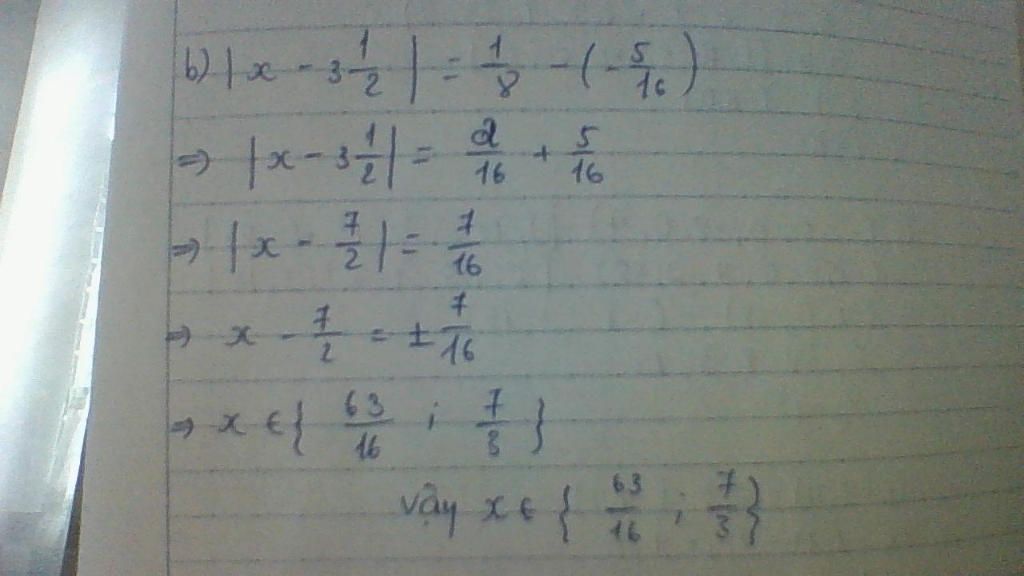 b) |x - 3 1/2| = 1/8 - (-5/16)
=> |x - 3 1/2| = 2/16 + 5/16
=> |x - 7/2| = 7/16
=> x - 7/2 = ± 7/16
=> x ∈ { 63/16 ; 7/3 }
Vậy x ∈ { 63/16 ; 7/3 }